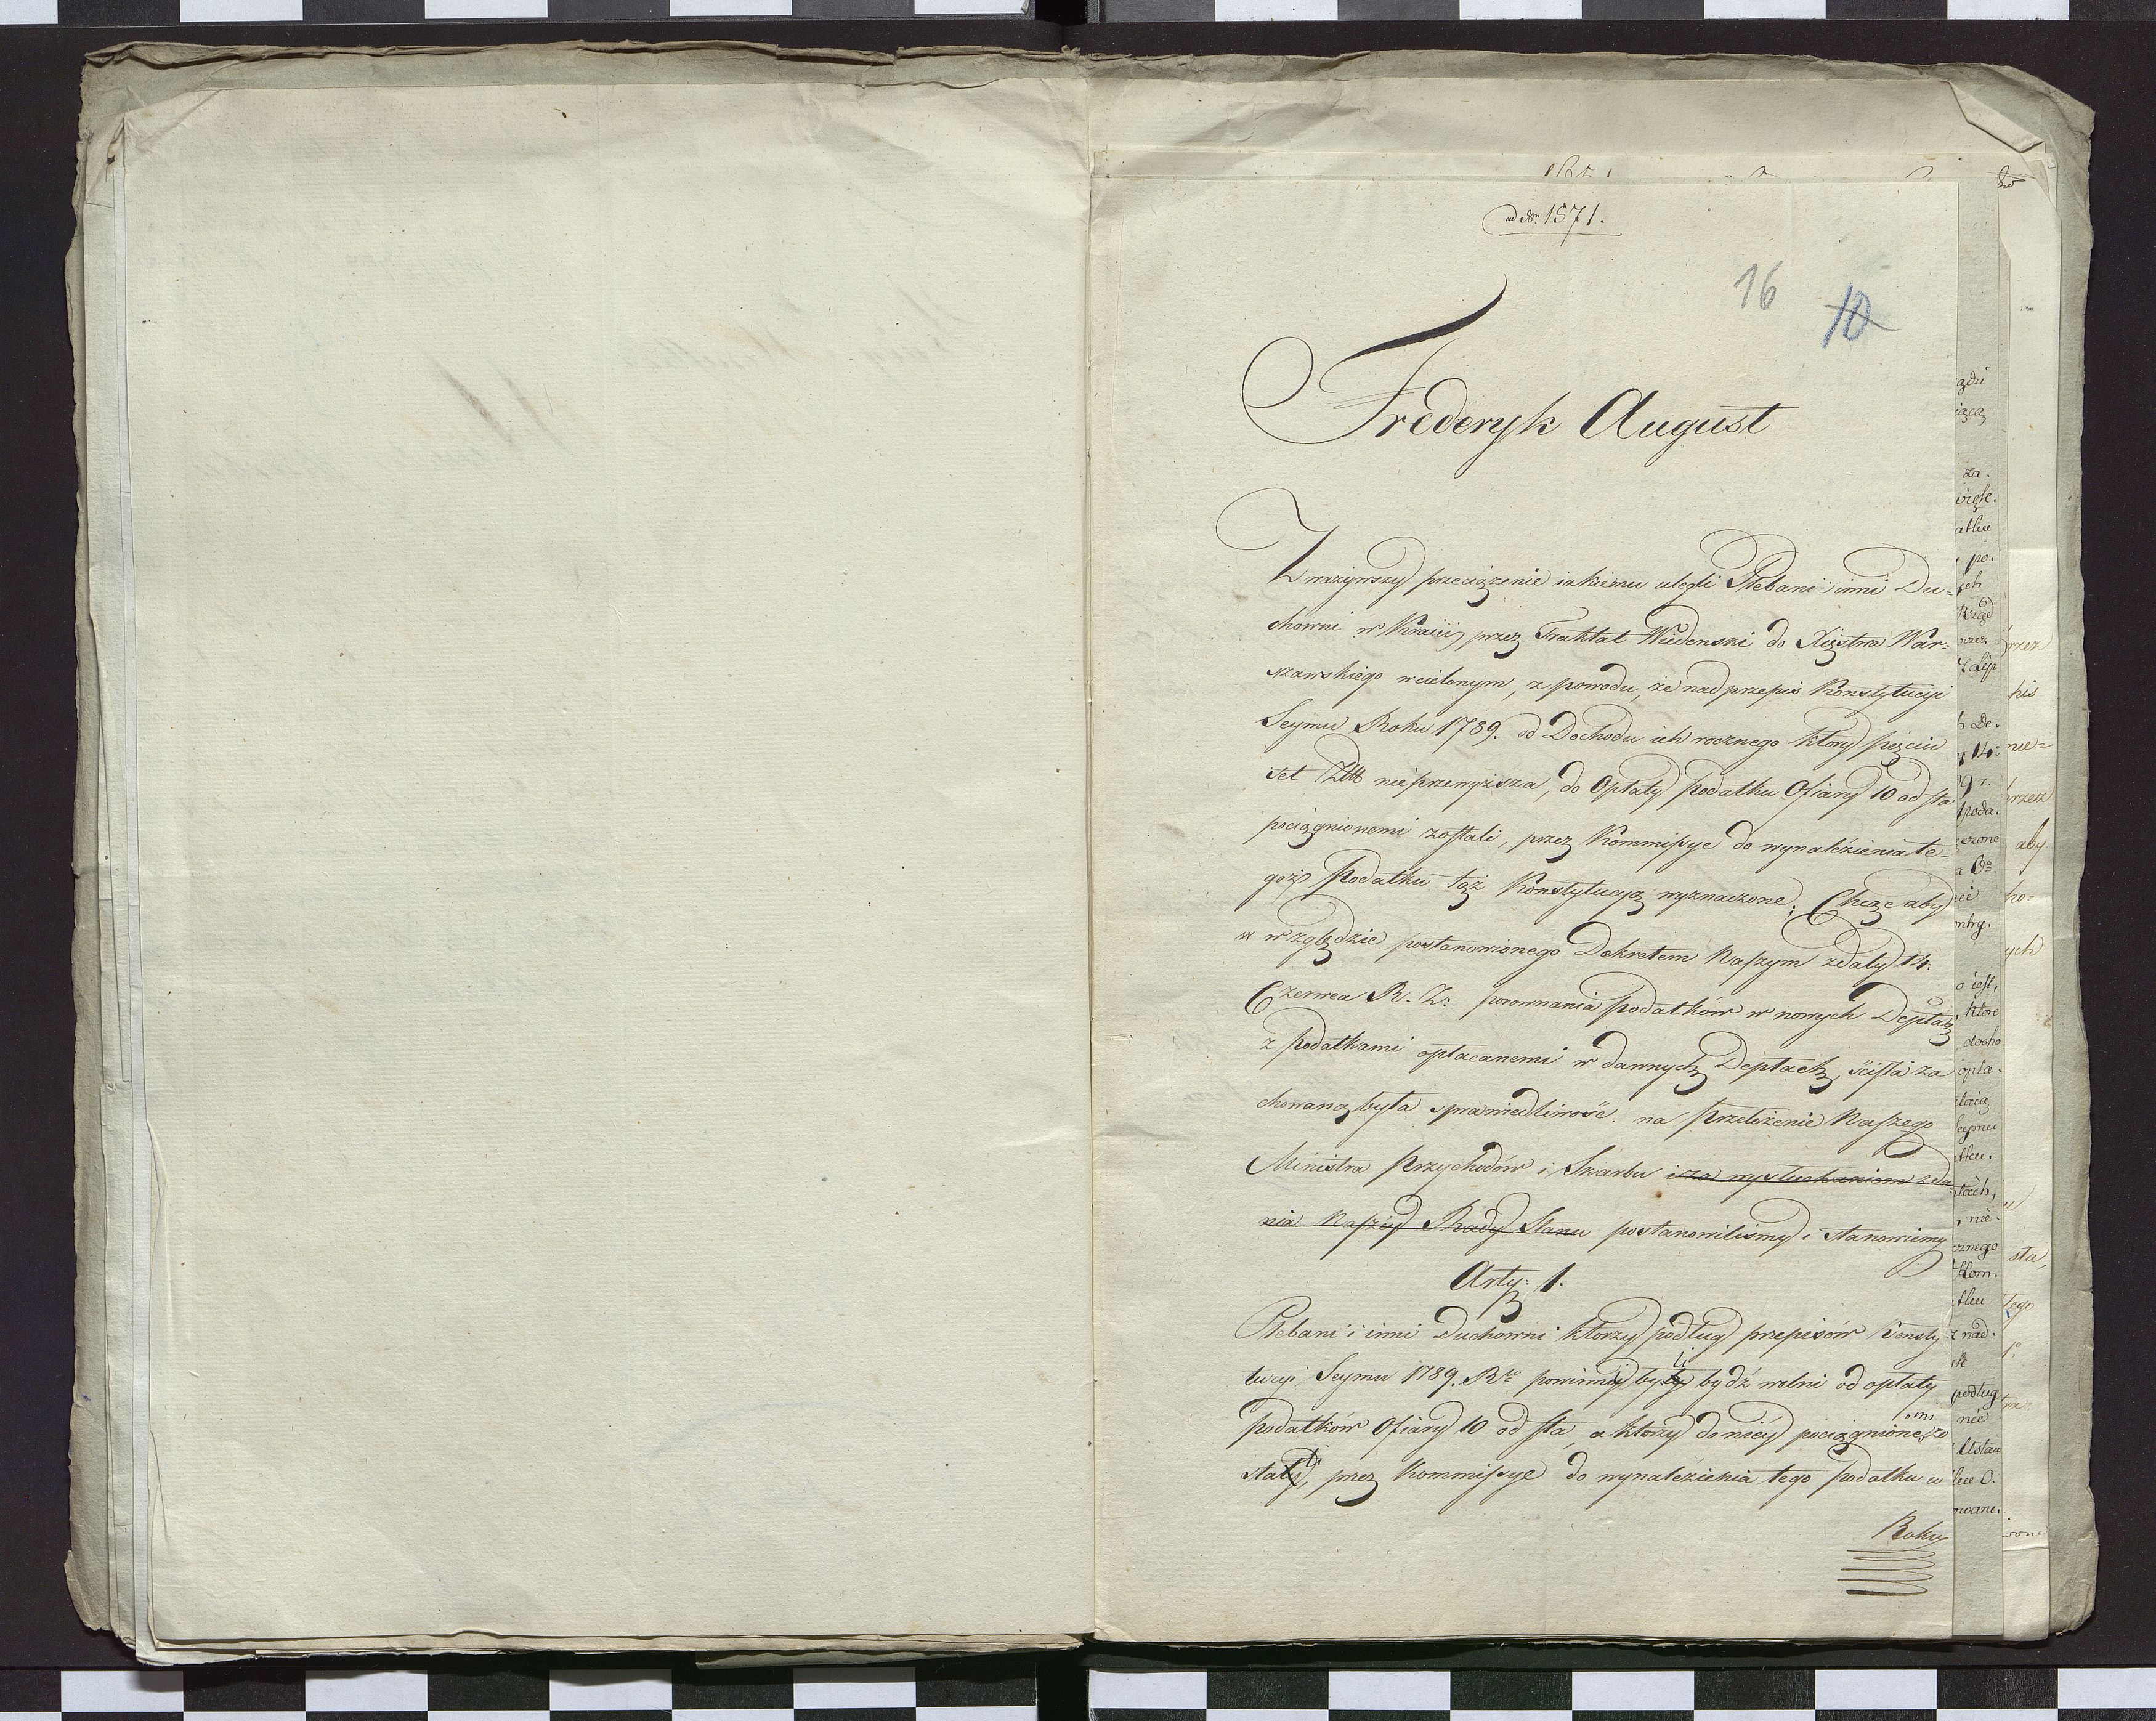 ad Nrm 1571.
16 10
Frederyk August
Zważywszy przeciązenie iakiemu ulegli Plebani i inni Du=
chowni w Kraiu przez Traktat Wiedenski do Xięstwa War=
szawskiego wcielonym, z powodu, że nad przepis Konstytucyi
Seymu Roku 1789. od Dochodu ich rocznego ktory pięciu
set Złł nieprzewyższa, do Opłaty podatku Ofiary 10 od sta
pociągnionemi zostali, przez Kommissye do wynalezienia te=
goż Podatku tąż Konstytucyą wyznaczone; Chcąc aby
w względzie postanowionego Dekretem Naszym z daty 14.
Czerwca R. Z: porownania podatków w nowych Deptach
z podatkami opłacanemi w dawnych Deptach, ścisła za
chowaną była sprawiedliwość. na przełożenie Naszego
Ministra Przychodów i Skarbu i za wysłuchaniem zda
nia Naszéy Rady Stanu postanowiliśmy i stanowiemy
Arty: 1.
Plebani i inni Duchowni ktorzy podług przepisów Konsty
tucyi Seymu 1789. Rku powinni byli bydź wolni od opłaty
podatków Ofiary 10 od sta, a ktorzy do niéy pociągnionemi zo
stali, przez Kommissye do wynalezienia tego podatku w
Roku